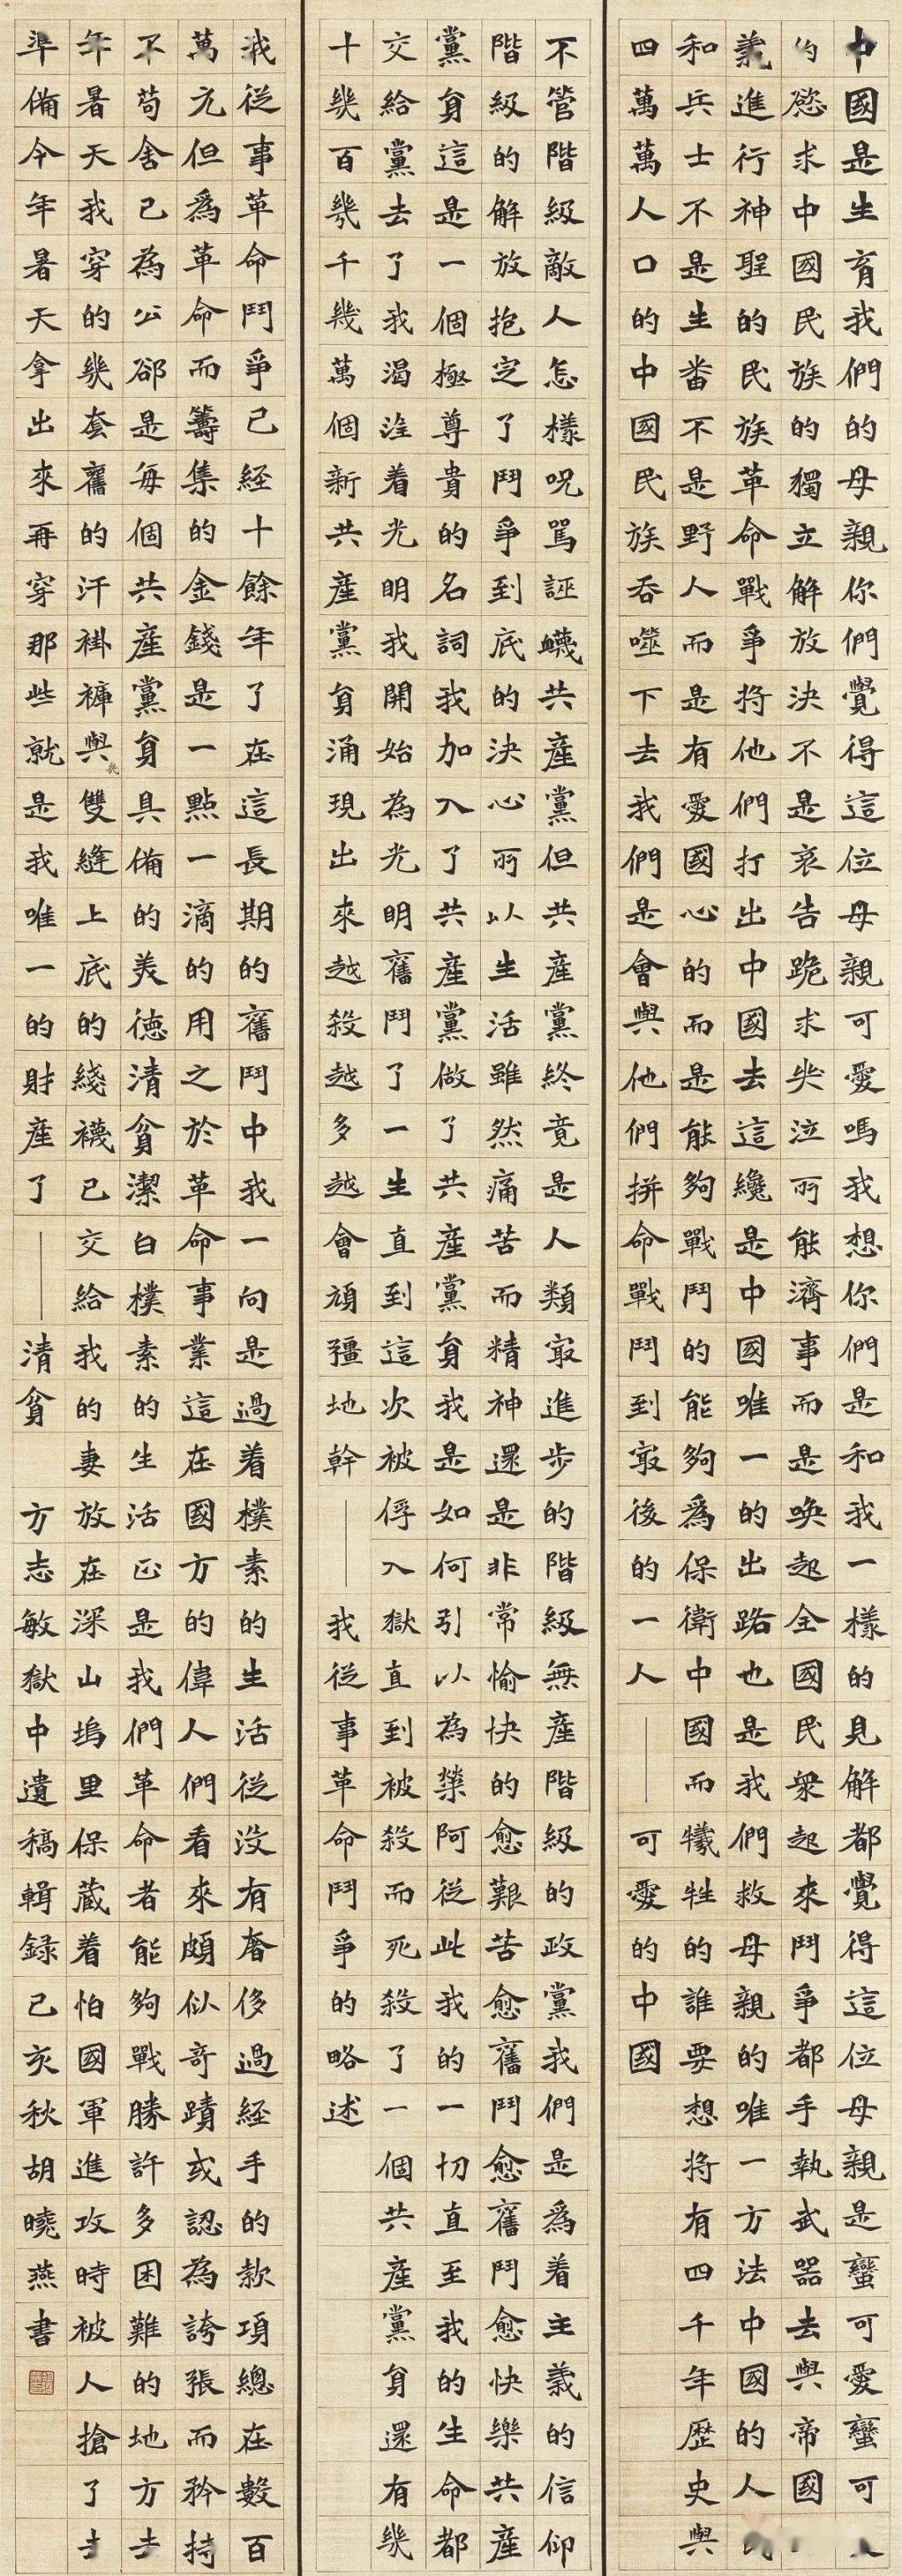 中國是生育我們的母親你們覺得這位母親可愛嗎我想你們是和我一樣的見解都覺得這位母親是蠻可愛蠻可
的慾求中國民族的獨立解放決不是哀告跪求哭泣所能濟事而是喚起全國民衆起來鬥爭都手執武器去與帝國
義進行神聖的民族革命戰爭將他們打出中國去這纔是中國唯一的出路也是我們救母親的唯一方法中國的人民
和兵士不是生番不是野人而是有愛國心的而是能夠戰鬥的能夠爲保衛中國而犧牲的誰要想將有四千年歷史與
四萬萬人口的中國民族吞噬下去我們是會與他們拼命戰鬥到㝡後的一人——可愛的中國
不管階級敵人怎樣咒罵誣衊共產黨但共產黨終竟是人類㝡進步的階級無產階級的政黨我們是爲着主義的信仰
階級的解放抱定了鬥爭到底的決心所以生活雖然痛苦而精神還是非常愉快的愈艱苦愈舊鬥愈舊鬥愈快樂共產
黨員這是一個極尊貴的名詞我加入了共產黨做了共產黨員我是如何引以為榮阿從此我的一切直至我的生命都
交給黨去了我渴望着光明我開始為光明舊鬥了一生直到這次被俘入獄直到被殺而死殺了一個共產黨員還有幾
十幾百幾千幾萬個新共產黨員涌現出來越殺越多越會頑彊地幹——我從事革命鬥爭的略述
我從事革命鬥爭已經十餘年了在這長期的舊鬥中我一向是過着樸素的生活從沒有奢侈過經手的款項總在數百
萬元但爲革命而籌集的金錢是一點一滴的用之於革命事業這在國方的偉人們看來頗似奇蹟或認為誇張而矜持
不苟舍己為公卻是每個共產黨員具備的美德清貧潔白樸素的生活正是我們革命者能夠戰勝許多困難的地方去
年暑天我穿的幾套舊的汗褂褲與幾雙縫上底的綫襪已交給我的妻放在深山塢里保藏着怕國軍進攻時被人搶了去
準備今年暑天拿出來再穿那些就是我唯一的財產了——清貧 方志敏獄中遺稿輯錄己亥秋胡曉燕書